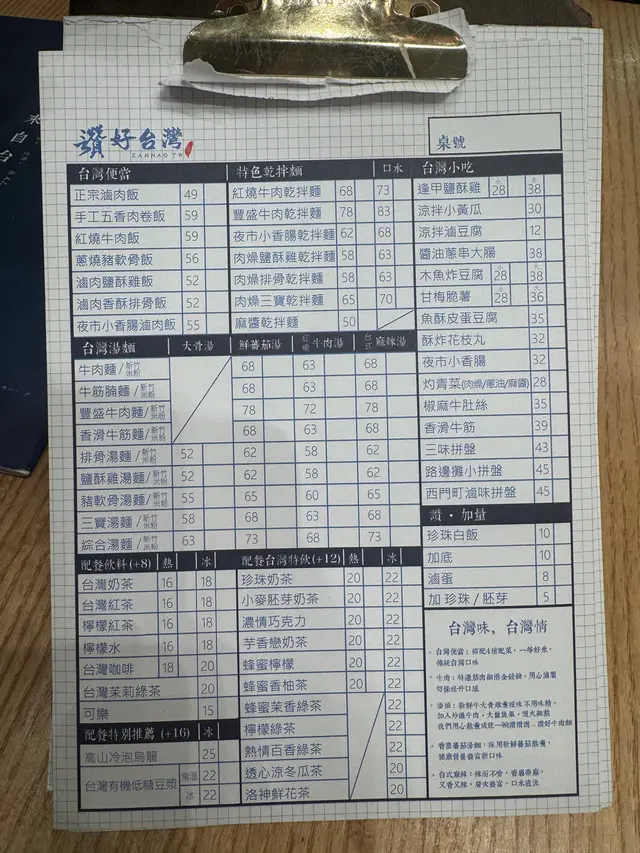 讚好台灣
ZANHAO.TW
桌號
台灣便當
正宗滷肉飯 49
手工五香肉卷飯 59
紅燒牛肉飯 59
蔥燒豬軟骨飯 56
滷肉鹽酥雞飯 52
滷肉香酥排骨飯 52
夜市小香腸滷肉飯 55
特色乾拌麵 口水
紅燒牛肉乾拌麵 68 73
豐盛牛肉乾拌麵 78 83
夜市小香腸乾拌麵 62 68
肉燥鹽酥雞乾拌麵 58 63
肉燥排骨乾拌麵 58 63
肉燥三寶乾拌麵 65 70
麻醬乾拌麵 50
台灣小吃
逢甲鹽酥雞 小 28 大 38
涼拌小黃瓜 30
涼拌滷豆腐 12
醬油蔥串大腸 38
木魚炸豆腐 小 28 大 38
甘梅脆薯 小 28 大 36
魚酥皮蛋豆腐 35
酥炸花枝丸 32
夜市小香腸 32
灼青菜(肉燥/蔥油/麻醬) 28
椒麻牛肚絲 35
香滑牛筋 39
三味拼盤 43
路邊攤小拼盤 45
西門町滷味拼盤 45
台灣湯麵 大骨湯 鮮蕃茄湯 紅燒牛肉湯 台式麻辣湯
牛肉麵/新竹米粉 68 63 68
牛筋腩麵/新竹米粉 68 63 68
豐盛牛肉麵/新竹米粉 78 72 78
香滑牛筋麵/新竹米粉 68 63 68
排骨湯麵/新竹米粉 52 62 58 62
鹽酥雞湯麵/新竹米粉 52 62 58 62
豬軟骨湯麵/新竹米粉 55 65 60 65
三寶湯麵/新竹米粉 58 68 63 68
綜合湯麵/新竹米粉 63 73 68 73
讚・加量
珍珠白飯 10
加底 10
滷蛋 8
加 珍珠 / 胚芽 5
配餐飲料(+8) 熱 冰
台灣奶茶 16 18
台灣紅茶 16 18
檸檬紅茶 16 18
檸檬水 16 18
台灣咖啡 18 20
台灣茉莉綠茶 20
可樂 15
配餐特別推薦 (+16) 冰
高山冷泡烏龍 25
台灣有機低糖豆漿 常溫 22
冰 22
配餐台灣特飲(+12) 熱 冰
珍珠奶茶 20 22
小麥胚芽奶茶 20 22
濃情巧克力 20 22
芋香戀奶茶 20 22
蜂蜜檸檬 20 22
蜂蜜香柚茶 20 22
蜂蜜茉香綠茶 22
檸檬綠茶 22
熱情百香綠茶 22
透心涼冬瓜茶 20
洛神鮮花茶 20
台灣味，台灣情
・台灣便當：搭配4樣配菜，一等好米，
傳統台灣口味